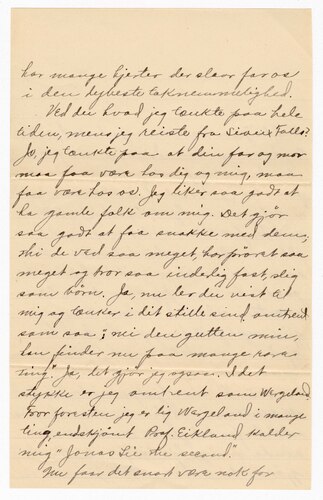 har mange hjerter der slaar for os
i den dybeste taknemmelighed.
Ved du hvad jeg tænkte paa hele
tiden, mens jeg reiste fra Sioux Falls?
Jo, jeg tænkte paa at din far og mor
maa faa være hos dig og mig, maa
faa være hos os. Jeg liker saa godt at
ha gamle folk om mig. Det gjør
saa godt at faa snakke med dem,
thi de ved saa meget, har prøvet saa
meget og tror saa inderlig fast, slig
som børn. Ja, nu ler du vist til
mig og tænker i dit stille sind omtrent
som saa; "nei den gutten min,
han finder nu paa mange rare
ting." Ja, det gjør jeg ogsaa. I det
stykke er jeg omtrent som Wergeland.
Foor foresten jeg er lig Wergeland i mange
ting, endskjønt Prof. Eikland kalder
mig "Jonas Lie the second."
Nu faar det snart være nok for